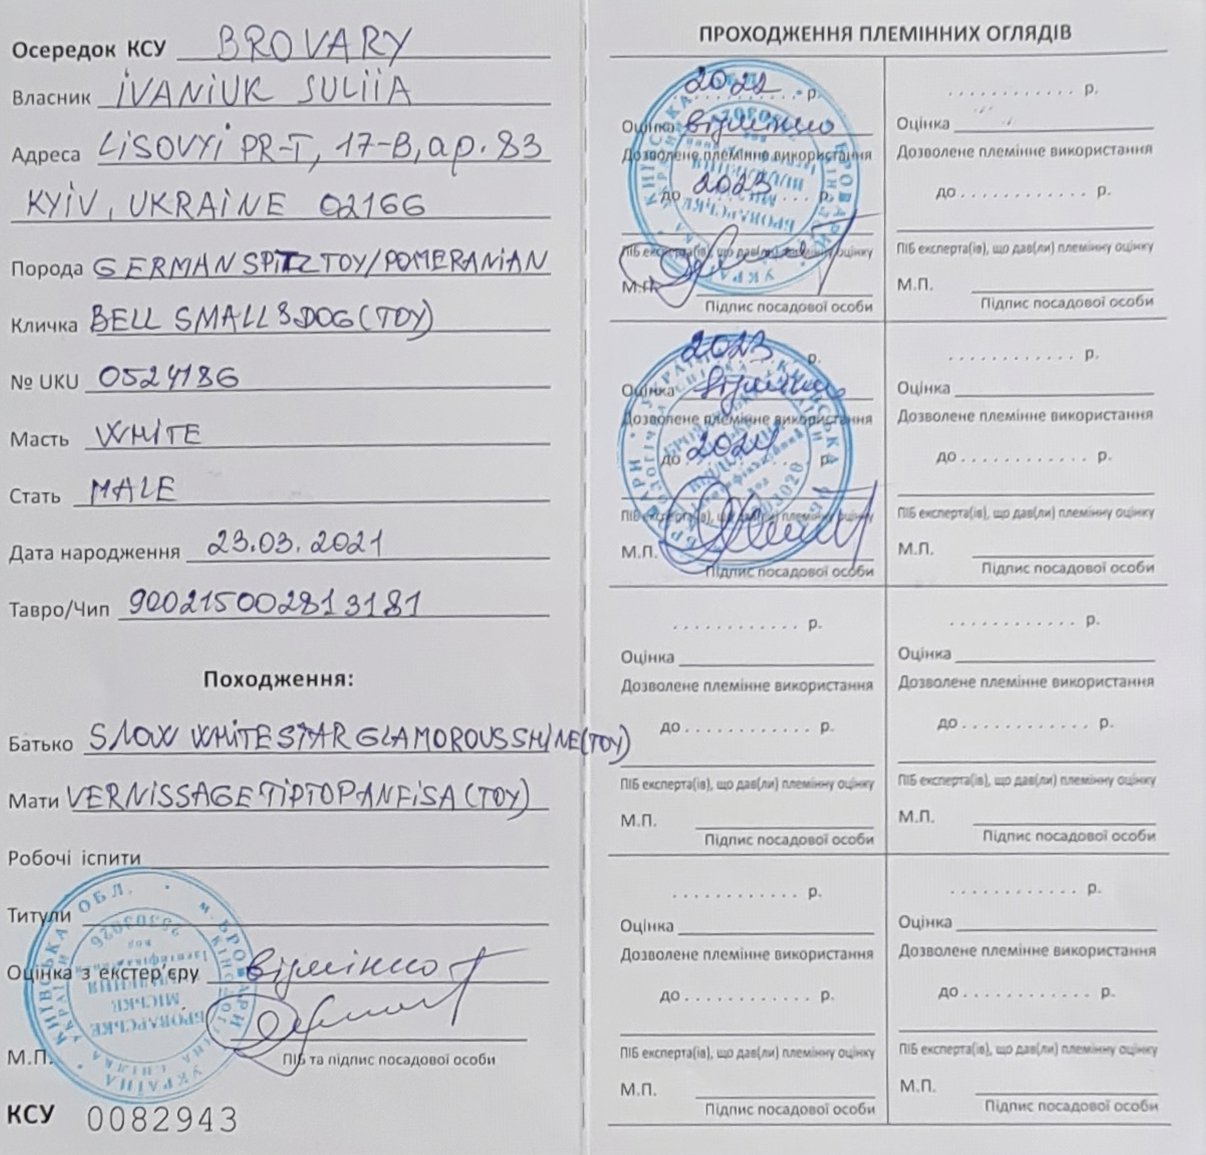 Осередок КСУ BROVARY
Власник IVANIUK SULIIA
Адреса LISOVYI PR-T, 17-B, ap. 83
KYIV, UKRAINE 02166
Порода GERMAN SPITZ TOY/POMERANIAN
Кличка BELL SMALL S DOG (TOY)
№ UKU 0524186
Масть WHITE
Стать MALE
Дата народження 23.03.2021
Тавро/Чип 900215002813181
Походження:
Батько SNOW WHITE STAR GLAMOROUS SHINE (TOY)
Мати VERNISSAGE TIPTOP ANFISA (TOY)
Робочі іспити
Титули
Оцінка з екстер'єру відмінно
М.П.
ПІБ та підпис посадової особи
КСУ 0082943
ПРОХОДЖЕННЯ ПЛЕМІННИХ ОГЛЯДІВ
2022 р.
Оцінка відмінно
Дозволене племінне використання
до 2023 р.
ПІБ експерта(ів), що дав(ли) племінну оцінку
М.П.
Підпис посадової особи
2023 р.
Оцінка відмінно
Дозволене племінне використання
до 2024 р.
ПІБ експерта(ів), що дав(ли) племінну оцінку
М.П.
Підпис посадової особи
............ р.
Оцінка
Дозволене племінне використання
до ............ р.
ПІБ експерта(ів), що дав(ли) племінну оцінку
М.П.
Підпис посадової особи
............ р.
Оцінка
Дозволене племінне використання
до ............ р.
ПІБ експерта(ів), що дав(ли) племінну оцінку
М.П.
Підпис посадової особи
............ р.
Оцінка
Дозволене племінне використання
до ............ р.
ПІБ експерта(ів), що дав(ли) племінну оцінку
М.П.
Підпис посадової особи
............ р.
Оцінка
Дозволене племінне використання
до ............ р.
ПІБ експерта(ів), що дав(ли) племінну оцінку
М.П.
Підпис посадової особи
............ р.
Оцінка
Дозволене племінне використання
до ............ р.
ПІБ експерта(ів), що дав(ли) племінну оцінку
М.П.
Підпис посадової особи
............ р.
Оцінка
Дозволене племінне використання
до ............ р.
ПІБ експерта(ів), що дав(ли) племінну оцінку
М.П.
Підпис посадової особи